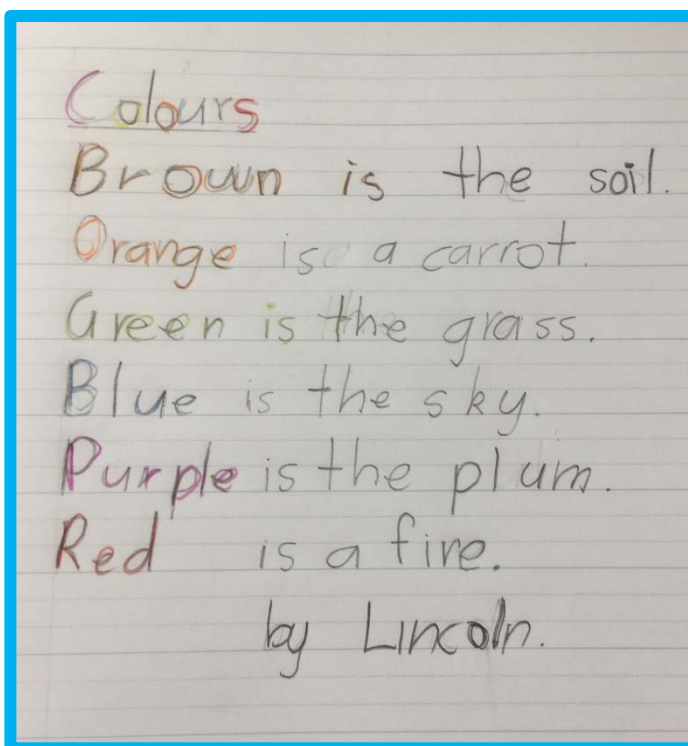 Colours
Brown is the soil.
Orange is a carrot.
Green is the grass.
Blue is the sky.
Purple is the plum.
Red is a fire.
by Lincoln.